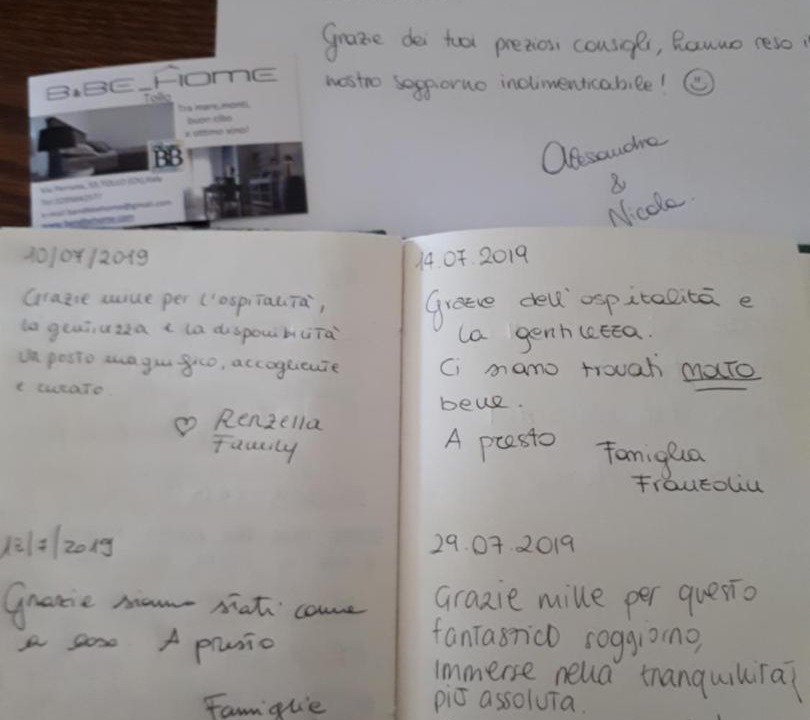 Grazie dei tuoi preziosi consigli, hanno reso il
nostro soggiorno indimenticabile!
Alessandra
&
Nicola.
B&BE_HOME
Tollo
Tra mare, monti,
buon cibo
e ottimo vino!
BB
10/07/2019
Grazie mille per l'ospitalità,
la gentilezza e la disponibilità
Un posto magnifico, accogliente
e curato
Renzella
Family
12/7/2019
Grazie siamo stati come
a casa. A presto
Famiglie
14.07.2019
Grazie dell'ospitalità e
la gentilezza.
Ci siamo trovati MOLTO
bene.
A presto
Famiglia
Franzolin
29.07.2019
Grazie mille per questo
fantastico soggiorno,
immerse nella tranquillità
più assoluta.